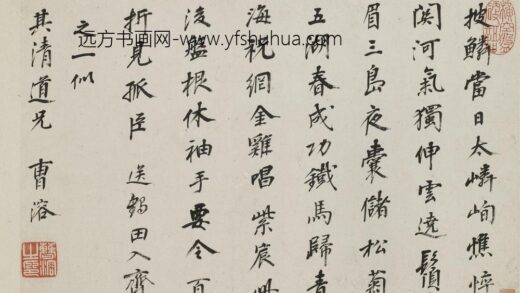 披鱗當日太嶙峋憔悴
関河氣獨伸雲遶鬢
眉三島夜囊儲松菊
五湖春成功鐵馬歸青
海祝網金雞唱紫宸
後盤根休袖手要令百
折見孤臣 送錫田入齊
之一似
其清道兄 曹溶
远方书画网- www.yfshuhua.com